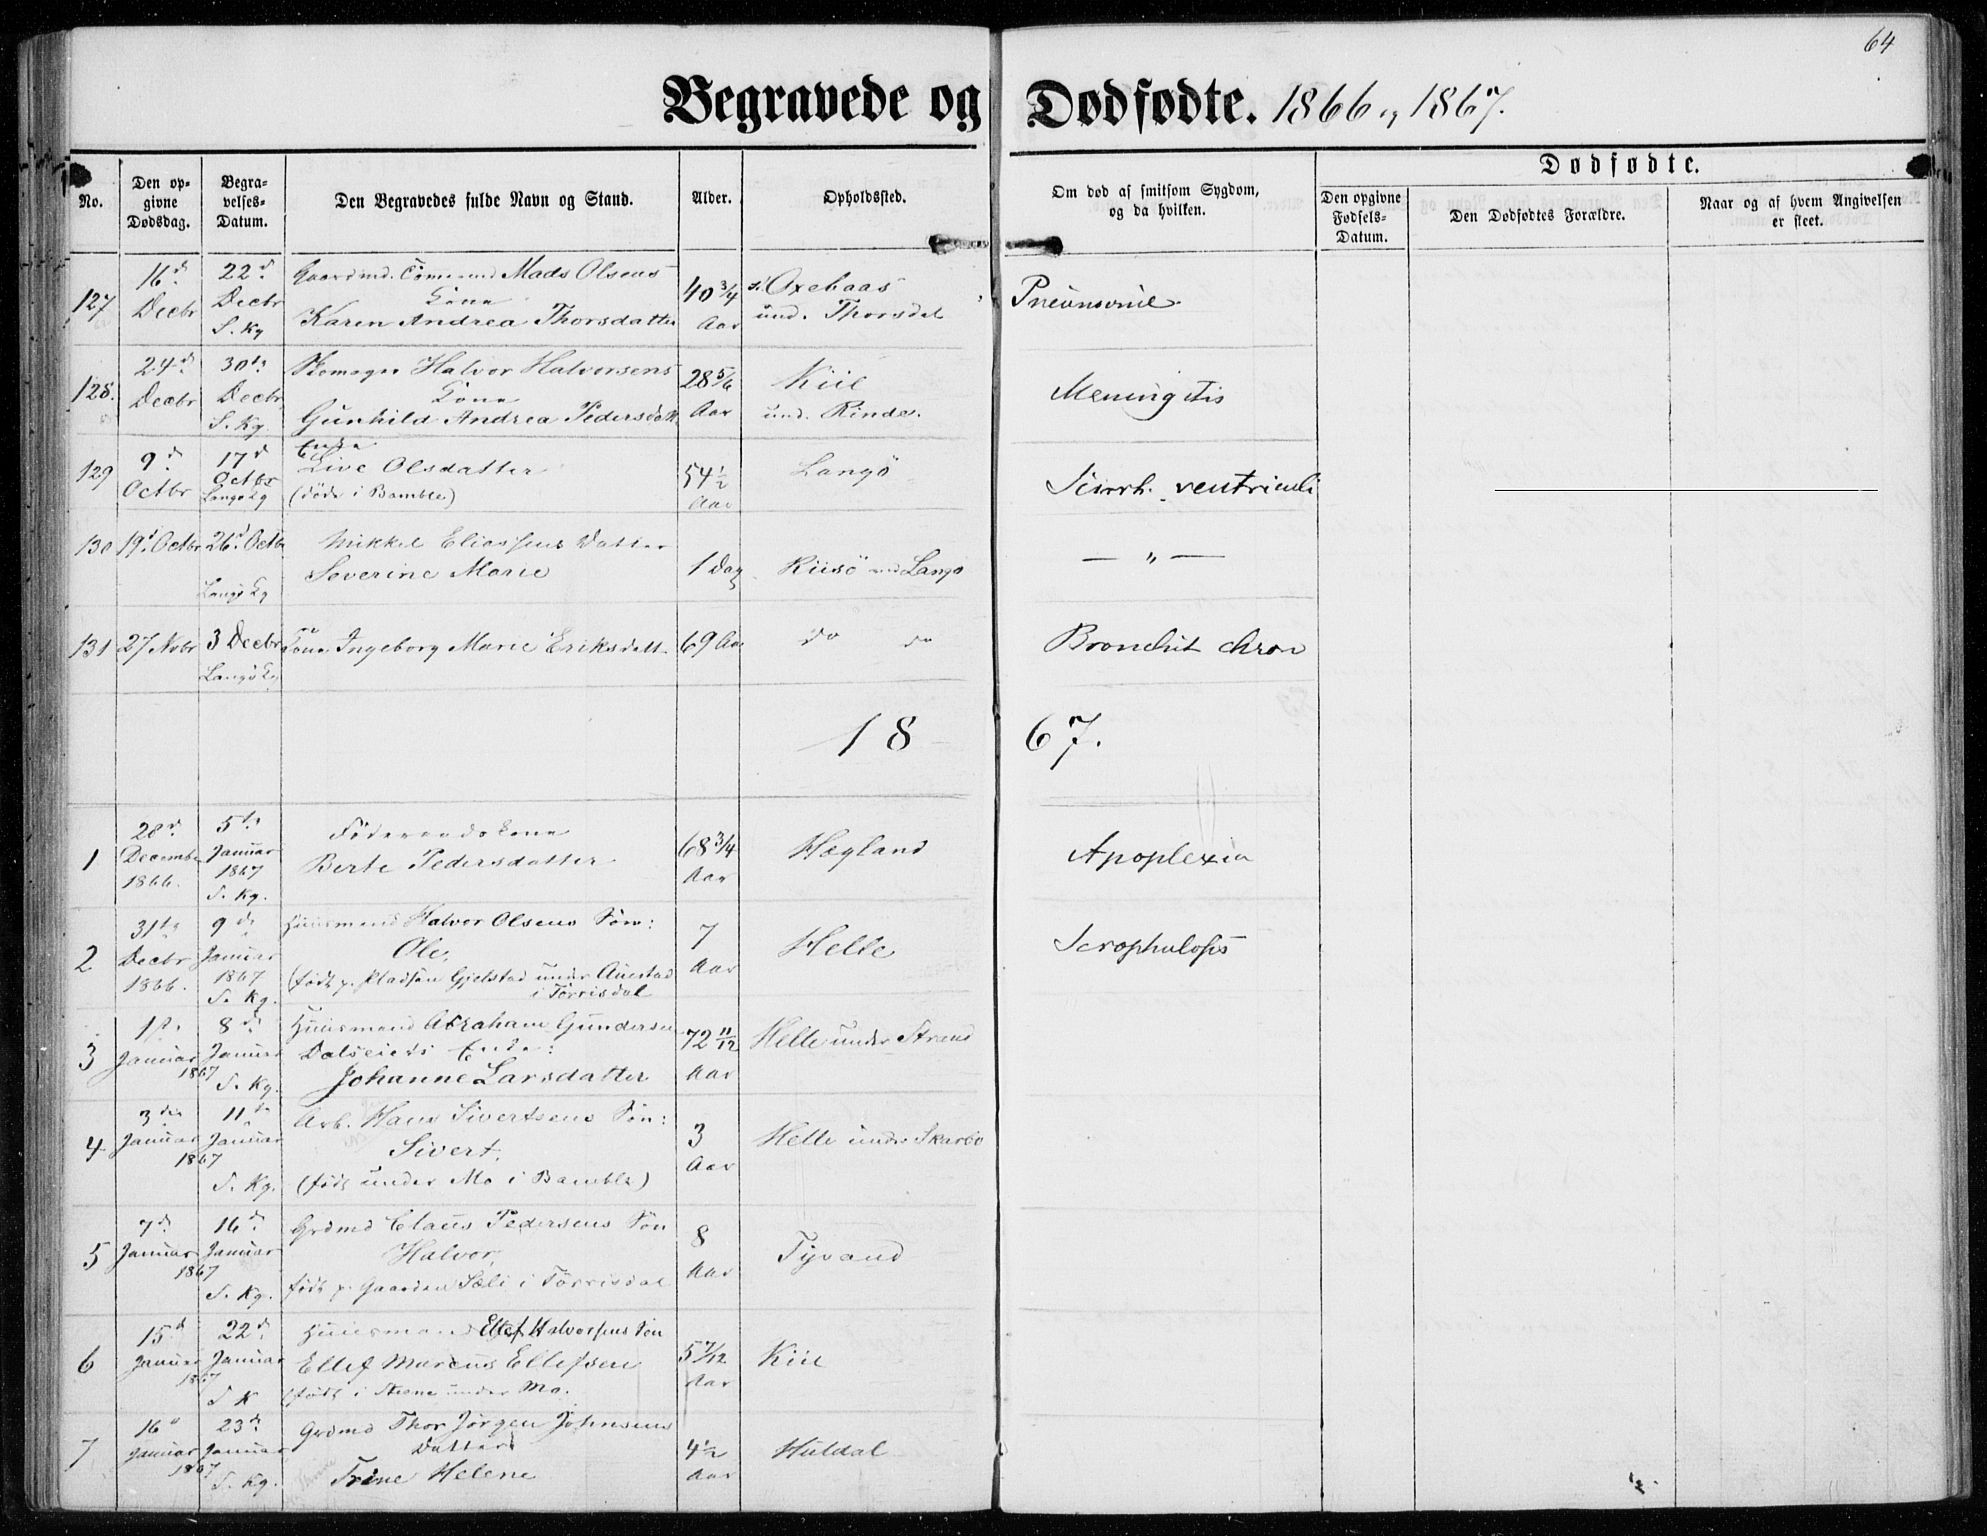 64
Begravede og Dødfødte. 1866 og 1867.
No.
Den op-
givne
Dødsdag.
Begra-
velses-
Datum.
Den Begravedes fulde Navn og Stand.
Alder.
Opholdssted.
Om død af smitsom Sygdom,
og da hvilken.
Dødfødte.
Den opgivne
Fødsels-
Datum.
Den Dødfødtes Forældre.
Naar og af hvem Angivelsen
er skeet.
127
16d
Decbr
22d
Decbr
S. Kg
Gaardmd. Mads Olsens
Kone
Karen Andrea Thorsdatter
40 3/4
Aar
Oxebaas
und. Thorsdal
Pneumonie
128.
24d
Decbr
30te
Decbr
S. Kg.
Skomager Halvor Halvorsens
Kone
Gunhild Andrea Pedersdatt.
28 5/6
Aar
Kiil
und. Rinde.
Meningitis
129
9d
Octbr
17d
Octbr
Langö Kg
Enke
Live Olsdatter
(døde i Bamble)
54 1/2
Aar
Langö
Scirrh. ventriculi
130
19d Octbr
26d Octb
Langö Kg
Mikkel Eliassens Datter
Severine Marie
1 Dag
Riisö und Langö
— " —
131
27 Nvbr
3 Decbr
Langö Kg
Kone Ingeborg Marie Eriksdatt.
69 Aar
do do
Bronchit chron
18 67.
1
28d
Decembr
1866.
5te
Januar
1867
S. Kg.
Föderaadskone
Berte Pedersdatter
68 3/4
Aar
Hægland
Apoplexia
2
31te
Decbr
1866.
9de
Januar
1867
S. Kg.
Huusmand Halvor Olsens Søn:
Ole,
(født p. Pladsen Gjelstad under Auestad
i Tørrisdal
7
Aar
Helle
Scrophulosis
3
1ste
Januar
1867
8de
Januar
S. Kg.
Huusmand Abraham Gundersen
Dalseiets Enke:
Johanne Larsdatter
72 11/12
Aar
Helle under Strand
4
3die
Januar
1867
11te
Januar
S. Kg.
Arb. Hans Sivertsens Søn:
Sivert,
(født under Mo i Bamble)
3
Aar
Helle under Skarbo
5
7de
Januar
1867
16de
Januar
S. Kg.
Grdmd Claus Pedersens Søn
Halvor,
født p. Gaarden Sæli i Tørrisdal
8
Aar
Tyvand
6
15d
Januar
1867
22d
Januar
S. K
Huusmand Ellef Halvorsens Søn
Ellef Marcus Ellefsen
(født i Steene under Mo.
5 7/12
Aar
Kiil
7
16d
Januar
1867
23de
Januar
S. Kg.
Grdmd Thor Jørgen Johnsens
Datter
Trine Helene
4 1/2
Aar
Huldal